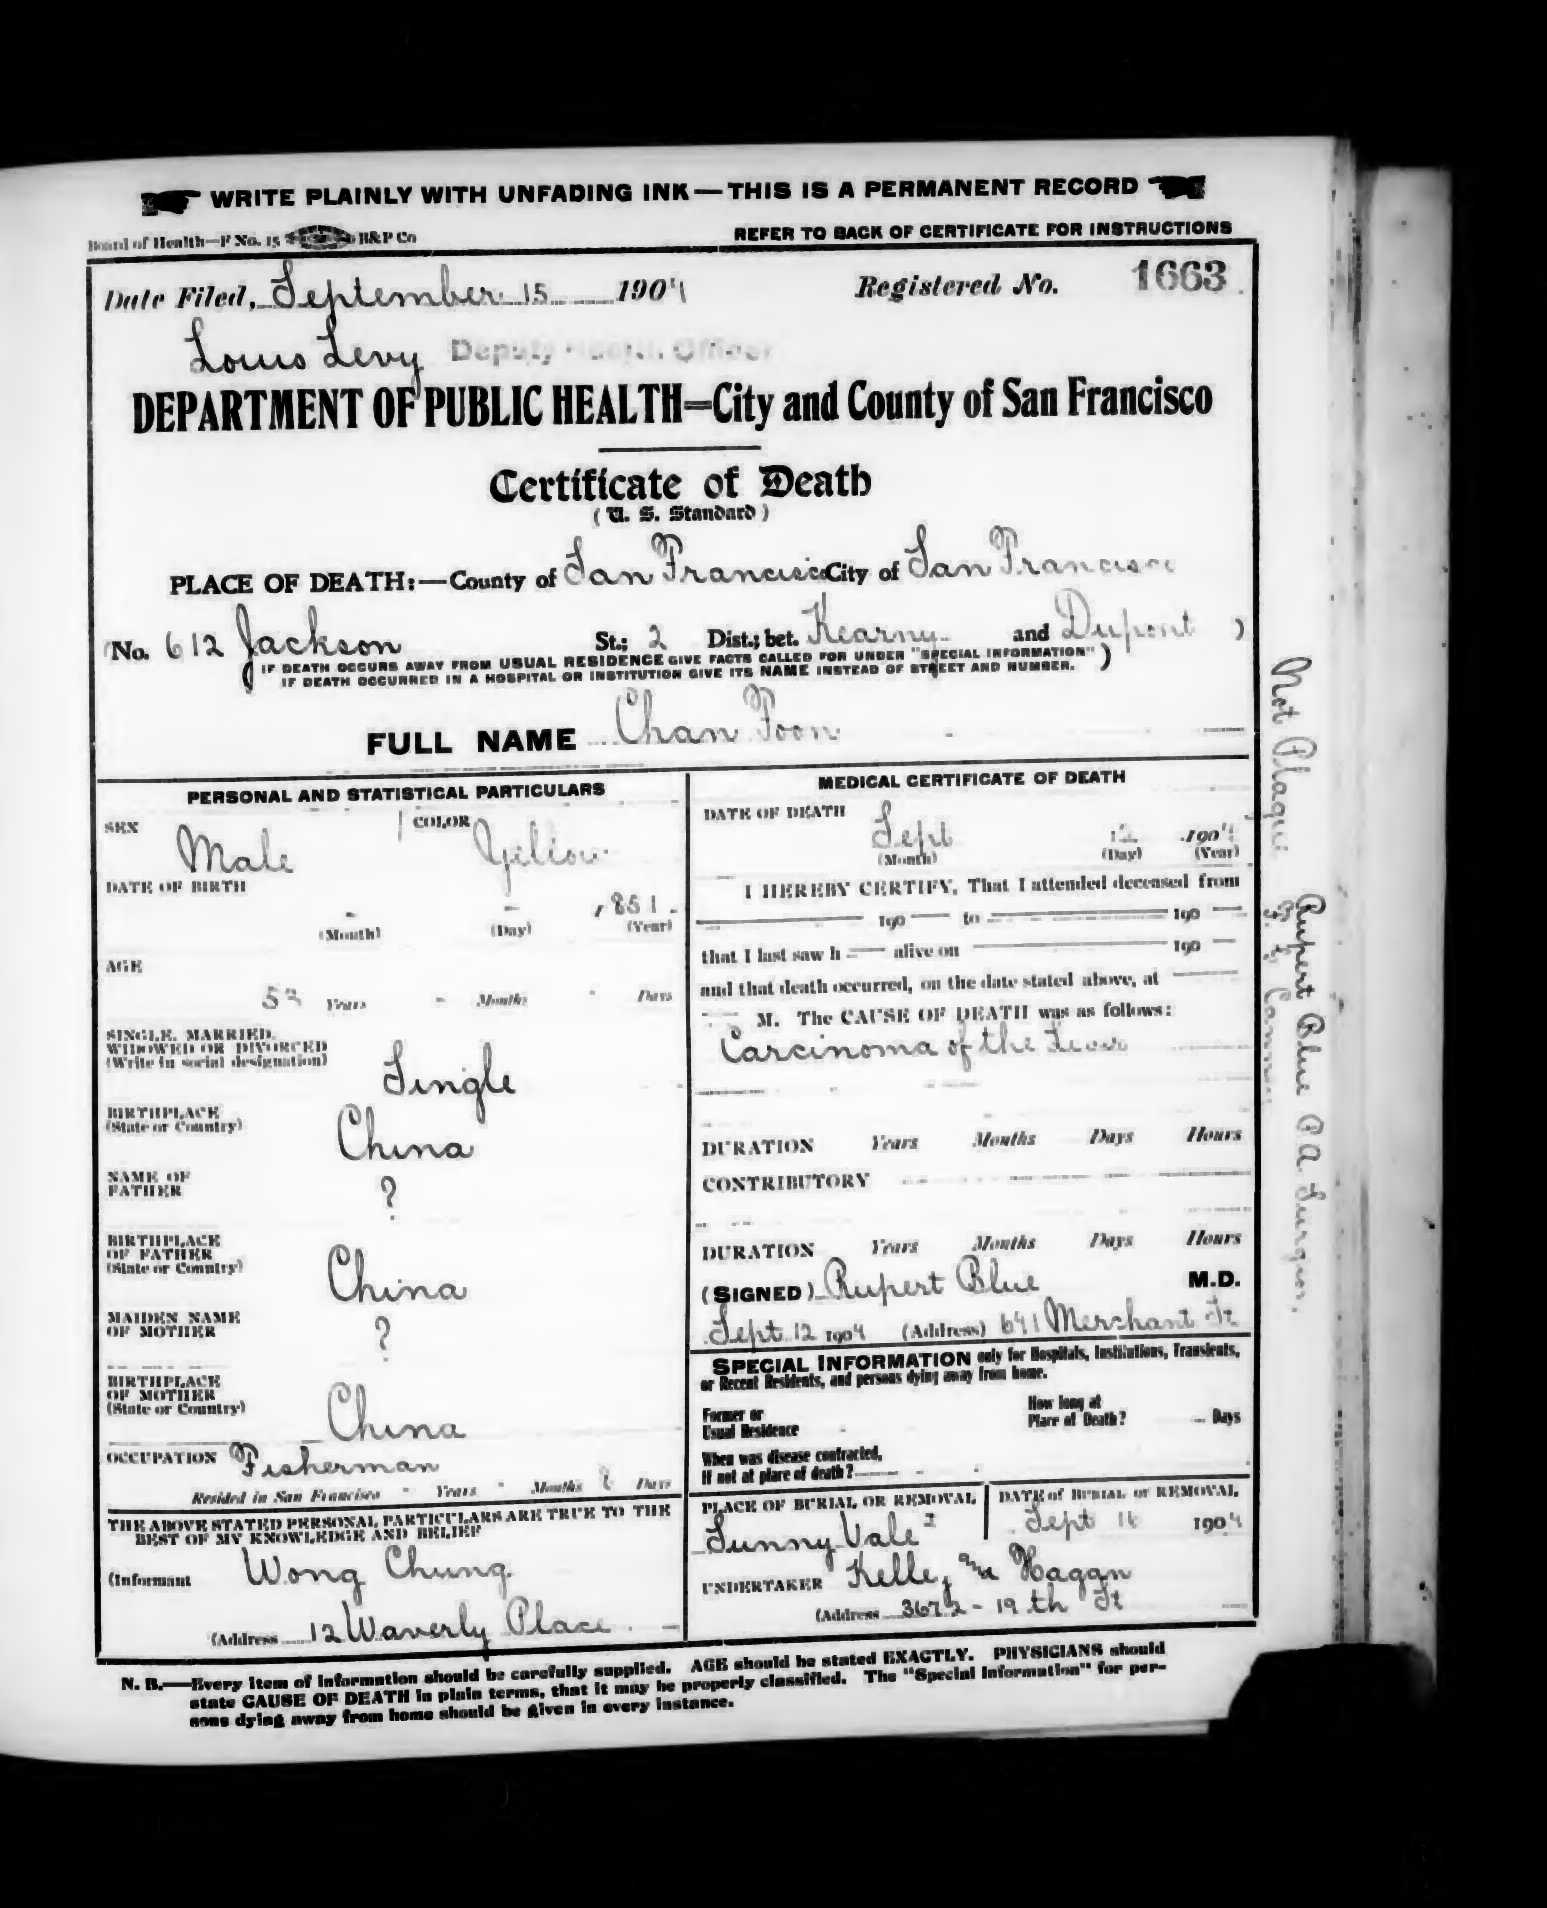 WRITE PLAINLY WITH UNFADING INK—THIS IS A PERMANENT RECORD
Board of Health—F No. 15 H&P Co
REFER TO BACK OF CERTIFICATE FOR INSTRUCTIONS
Date Filed, September 15 1904 Registered No. 1663
Louis Levy Deputy Health Officer
DEPARTMENT OF PUBLIC HEALTH=City and County of San Francisco
Certificate of Death
(U. S. Standard)
PLACE OF DEATH:—County of San Francisco City of San Francisco
(No. 612 Jackson St.; 2 Dist.; bet. Kearny and Dupont )
( IF DEATH OCCURS AWAY FROM USUAL RESIDENCE GIVE FACTS CALLED FOR UNDER "SPECIAL INFORMATION" )
IF DEATH OCCURRED IN A HOSPITAL OR INSTITUTION GIVE ITS NAME INSTEAD OF STREET AND NUMBER.
FULL NAME Chan Toon
PERSONAL AND STATISTICAL PARTICULARS
SEX Male COLOR Yellow
DATE OF BIRTH
- - 1851
(Month) (Day) (Year)
AGE
53 Years - Months - Days
SINGLE, MARRIED,
WIDOWED OR DIVORCED
(Write in social designation) Single
BIRTHPLACE
(State or Country) China
NAME OF
FATHER ?
BIRTHPLACE
OF FATHER
(State or Country) China
MAIDEN NAME
OF MOTHER ?
BIRTHPLACE
OF MOTHER
(State or Country) China
OCCUPATION Fisherman
Resided in San Francisco - Years - Months 8 Days
THE ABOVE STATED PERSONAL PARTICULARS ARE TRUE TO THE
BEST OF MY KNOWLEDGE AND BELIEF
(Informant Wong Chung
(Address 12 Waverly Place
MEDICAL CERTIFICATE OF DEATH
DATE OF DEATH
Sept 12 1904
(Month) (Day) (Year)
I HEREBY CERTIFY, That I attended deceased from
190 to 190
that I last saw h alive on 190
and that death occurred, on the date stated above, at
M. The CAUSE OF DEATH was as follows:
Carcinoma of the Liver
DURATION Years Months Days Hours
CONTRIBUTORY
DURATION Years Months Days Hours
(SIGNED) Rupert Blue M.D.
Sept 12 1904 (Address) 641 Merchant St
SPECIAL INFORMATION only for Hospitals, Institutions, Transients,
or Recent Residents, and persons dying away from home.
Former or
Usual Residence -
How long at
Place of Death? Days
When was disease contracted,
If not at place of death?
PLACE OF BURIAL OR REMOVAL
Sunny Vale
DATE of BURIAL or REMOVAL
Sept 16 1904
UNDERTAKER Kelley and Hagan
(Address 3672 - 19th St
N. B.—Every item of information should be carefully supplied. AGE should be stated EXACTLY. PHYSICIANS should
state CAUSE OF DEATH in plain terms, that it may be properly classified. The "Special Information" for per-
sons dying away from home should be given in every instance.
Not Plague
Rupert Blue P.A. Surgeon.